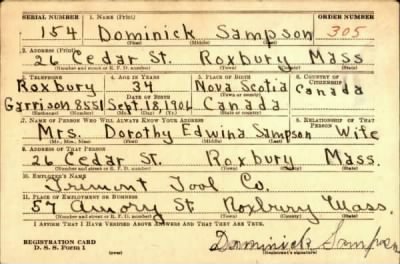 SERIAL NUMBER 1. NAME (Print) ORDER NUMBER
154 Dominick Sampson 305
(First) (Middle) (Last)
2. ADDRESS (Print)
26 Cedar St. Roxbury Mass
(Number and street or R. F. D. number) (Town) (County) (State)
3. TELEPHONE 4. AGE IN YEARS 5. PLACE OF BIRTH 6. COUNTRY OF CITIZENSHIP
Roxbury 34 Nova Scotia Canada
DATE OF BIRTH
Garrison 8551 Sept. 18, 1906 Canada
(Exchange) (Number) (Mo.) (Day) (Yr.) (State or country)
7. NAME OF PERSON WHO WILL ALWAYS KNOW YOUR ADDRESS 8. RELATIONSHIP OF THAT PERSON
Mrs. Dorothy Edwina Sampson Wife
(Mr., Mrs., Miss) (First) (Middle) (Last)
9. ADDRESS OF THAT PERSON
26 Cedar St. Roxbury Mass.
(Number and street or R. F. D. number) (Town) (County) (State)
10. EMPLOYER'S NAME
Tremont Tool Co.
11. PLACE OF EMPLOYMENT OR BUSINESS
57 Amory St Roxbury Mass.
(Number and street or R. F. D. number) (Town) (County) (State)
I AFFIRM THAT I HAVE VERIFIED ABOVE ANSWERS AND THAT THEY ARE TRUE.
REGISTRATION CARD
D. S. S. Form 1
Dominick Sampson
(Registrant's signature)